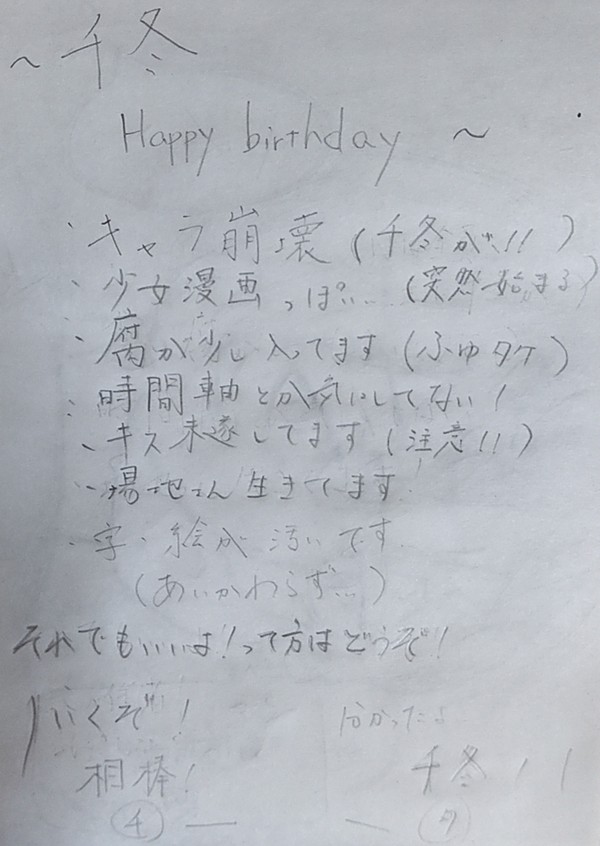 ～千冬
Happy birthday ～
・キャラ崩壊(千冬が!!)
・少女漫画っぽい…(突然始まる)
・腐が少し入ってます(ふゆタケ)
・時間軸とか気にしてない!
・キス未遂してます(注意!!)
・場地さん生きてます!
・字・絵が汚いです.
(あいかわらず…)
それでもいいよ!って方はどうぞ!
いくぞ!
相棒!
千
分かったよ
千冬!!
タ